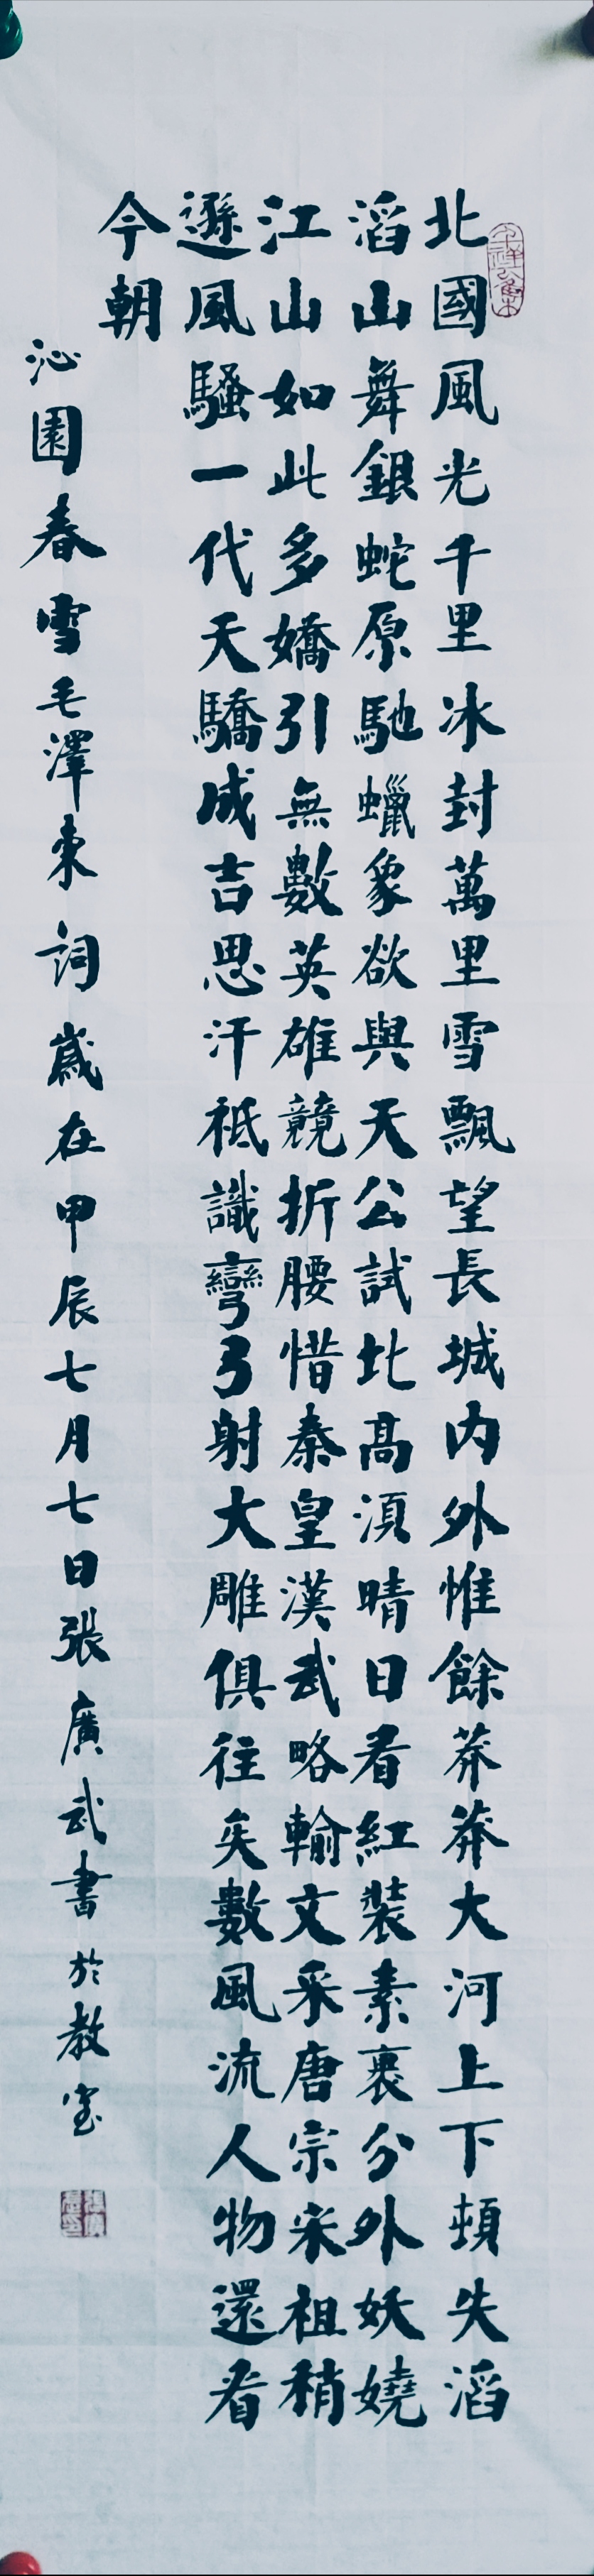 北國風光千里冰封萬里雪飄望長城内外惟餘莽莽大河上下頓失滔
滔山舞銀蛇原馳蠟象欲與天公試比高須晴日看紅裝素裹分外妖嬈
江山如此多嬌引無數英雄競折腰惜秦皇漢武略輸文采唐宗宋祖稍
遜風騷一代天驕成吉思汗祗識彎弓射大雕俱往矣數風流人物還看
今朝
沁園春雪毛澤東詞歲在甲辰七月七日張廣武書於教室